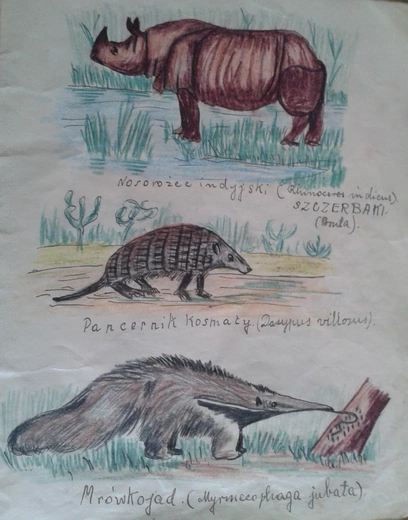 Nosorożec indyjski (Rhinoceros indicus)
SZCZERBAKI.
(Bruta).
Pancernik kosmaty. (Dasypus villosus).
Mrówkojad. (Myrmecophaga jubata).